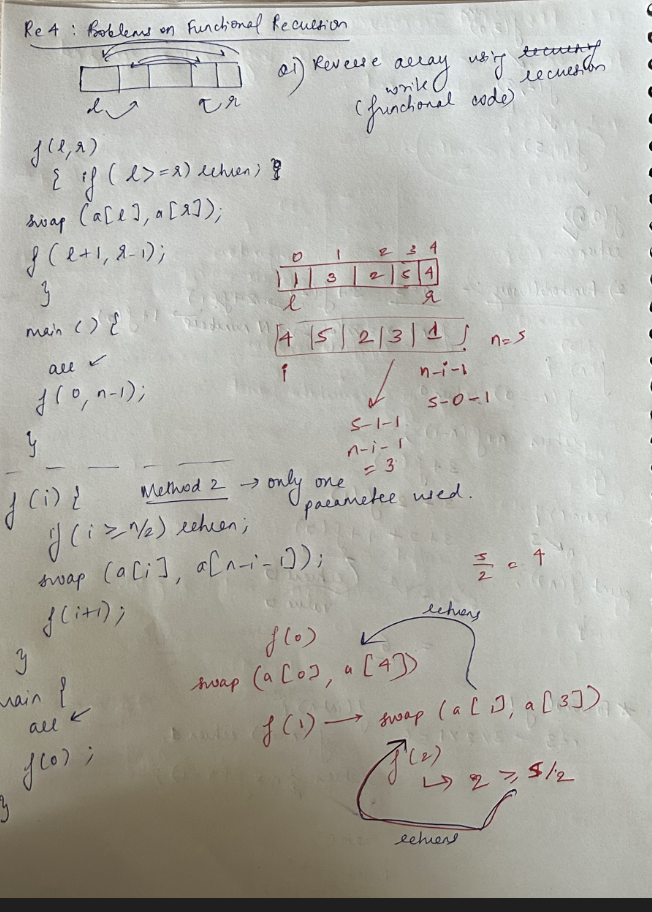 Re 4 : Problems on Functional Recursion
Q1) Reverse array using
recursion
write
(functional code)
l r
f(l,r)
{ if (l>=r) return; }
swap (a[l], a[r]);
f (l+1, r-1);
}
main () {
arr ✓
f(0, n-1);
}
0 1 2 3 4
1 3 2 5 4
l r
4 5 2 3 1 n=5
i n-i-1
5-0-1
5-1-1
n-i-1
= 3
f (i) { Method 2 → only one
parameter used.
if (i ≥ n/2) return;
swap (a[i], a[n-i-1]);
f(i+1);
}
main {
arr ✓
f(0);
}
5/2 = 4
returns
f(0)
swap (a[0], a[4])
f(1) → swap (a[1], a[3])
f(2)
↳ 2 ≥ 5/2
returns